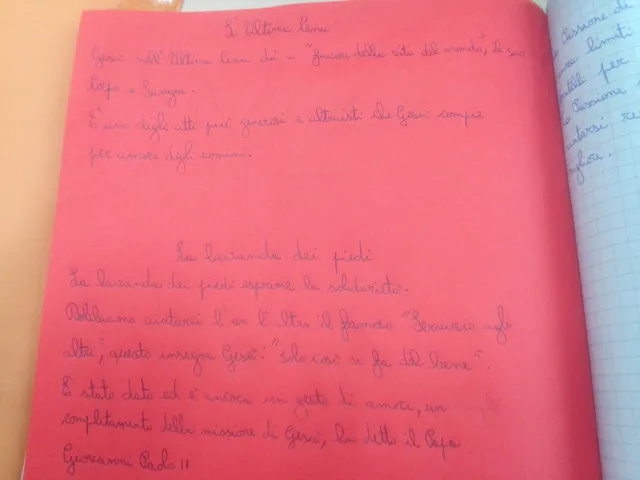 L'Ultima Cena
Gesù nell'Ultima Cena dà a "favore della vita del mondo", il suo
Corpo e Sangue.
È uno degli atti più generosi e altruisti che Gesù compie
per amore degli uomini.
La lavanda dei piedi
La lavanda dei piedi esprame la solidarietà.
Dobbiamo aiutarci l'un l'ltro il famoso "Servizio agli
altri", questo insegna Gesù: "solo così si fa del bene".
È stato dato ed è ancora un gesto di amore, un
completamento della missione di Gesù, ha detto il Papa
Giovanni Paolo II
Cessione di
limiti
per
Cessione
re